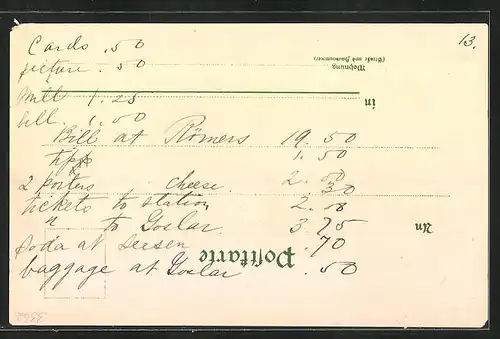 13.
Cards .50
picture .50
Mill 1.25
bill. 1.00
Bill at Römers 19.50
tips 1.50
2 porters 2.00
cheese. .30
tickets to station 2.00
" to Goslar 3.75
Soda at Seesen .70
baggage at Goslar .50
Wohnung
(Straße und Hausnummer)
in
An
Postkarte